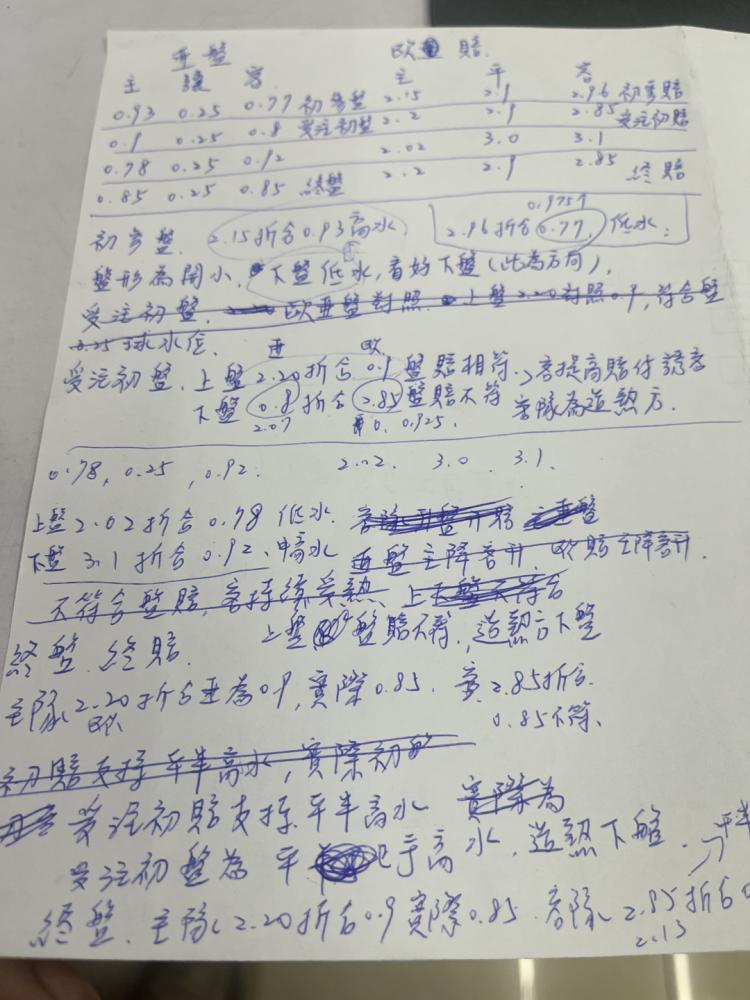 亜盤 歐賠
主 讓 客 主 平 客
0.93 0.25 0.77 初参盤 2.15 2.9 2.96 初参賠
0.9 0.25 0.8 受注初盤 2.2 2.9 2.85 受注初賠
0.78 0.25 0.92 2.02 3.0 3.1
0.85 0.25 0.85 終盤 2.2 2.9 2.85 終賠
0.975
初参盤. 2.15折合0.93高水 2.96折合0.77 低水
盤形為開小. 下盤低水,看好下盤(此為方向).
受注初盤. 歐亜盤對照 上盤2.20對照0.9,符合盤
0.25球水位.
亜 欧
受注初盤. 上盤2.20折合0.9盤賠相符. 客提高賠付誘
下盤0.8折合2.85盤賠不符 客隊為造熱方.
2.07 0.925.
0.78, 0.25, 0.92. 2.02. 3.0. 3.1.
上盤2.02折合0.78 低水.
下盤3.1折合0.92. 中高水 亜盤主降客升. 欧賠主降客升.
不符合盤賠,客持续受熱 上下盤不符合
上盤盤賠不符,造熱方下盤
終盤.終賠.
主隊2.20折合亜為0.9,實際0.85. 客2.85折合.
欧 0.85不符.
初賠支持平半高水,實際初
受注初賠支持平半高水 實際為
受注初盤為 平 高水.造熱下盤. 平半
終盤.主隊2.20折合0.9實際0.85.客隊2.85折合
2.13